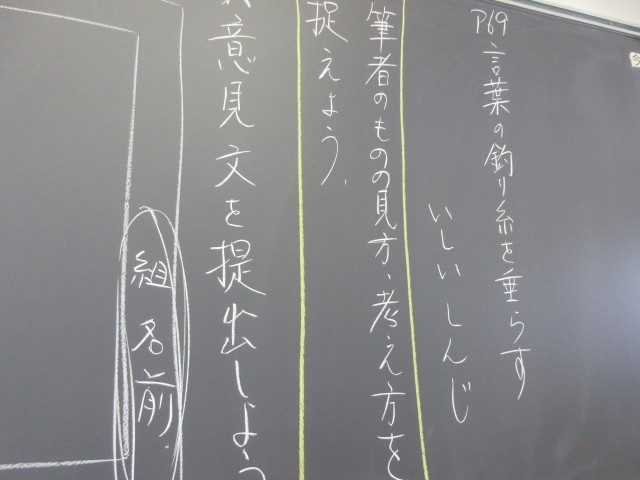 P69 言葉の釣り糸を垂らす
いしいしんじ
筆者のものの見方、考え方を
捉えよう、
意見文を提出しよう
組 名前.